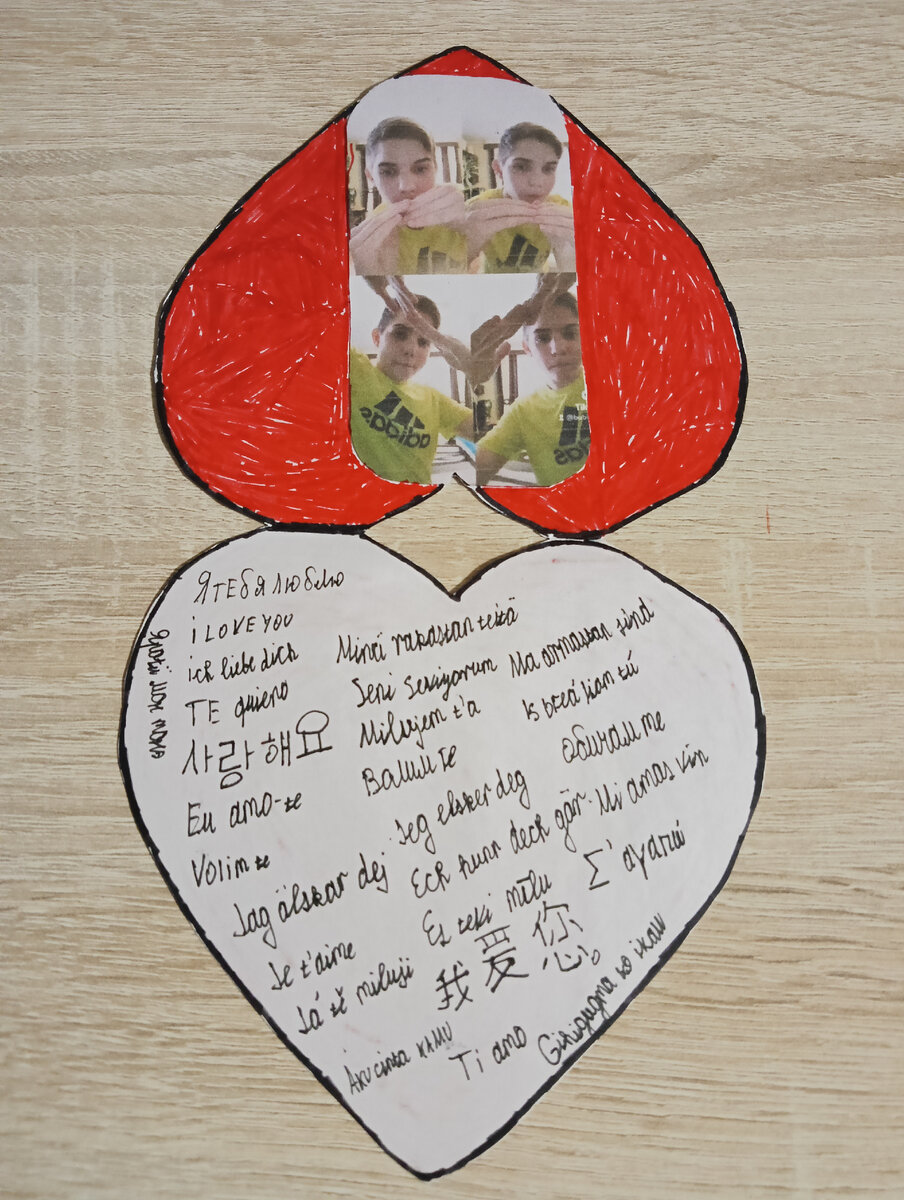 Я ТЕБЯ ЛЮБЛЮ
i LOVE YOU
ich liebe dich
TE quiero
사랑해요
Eu amo-te
Volim te
Jag älskar dej
Je t'aime
Já tě miluji
Aku cinta KAMU
Minä rakastan teitä
Seni seviyorum
Milujem t'a
Jeg elsker deg
Eck hunn deck gär
Es teki mīlu
我爱你。
Ti amo
Ma armastan sind
Is breá liom tú
Обичам те
Mi amas vin
Σ'αγαπώ
Ginigugma ko ikaw
adidas